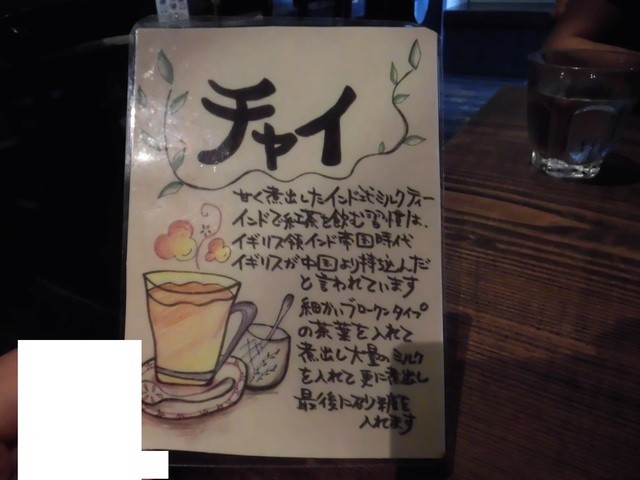 チャイ
甘く煮出したインド式ミルクティー
インドで紅茶を飲む習慣は、
イギリス領インド帝国時代
イギリスが中国より持込んだ
と言われています
細かいブロークンタイプ
の茶葉を入れて
煮出し大量のミルク
を入れて更に煮出し
最後に砂糖を
入れます